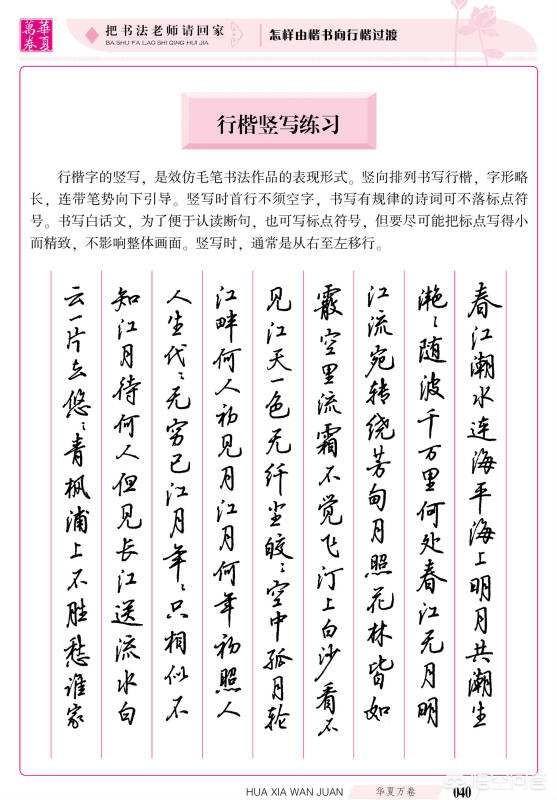 華夏
萬卷
把书法老师请回家
BA SHU FA LAO SHI QING HUI JIA
怎样由楷书向行楷过渡
行楷竖写练习
行楷字的竖写，是效仿毛笔书法作品的表现形式。竖向排列书写行楷，字形略
长，连带笔势向下引导。竖写时首行不须空字，书写有规律的诗词可不落标点符
号。书写白话文，为了便于认读断句，也可写标点符号，但要尽可能把标点写得小
而精致，不影响整体画面。竖写时，通常是从右至左移行。
春江潮水连海平海上明月共潮生
滟〻随波千万里何处春江无月明
江流宛转绕芳甸月照花林皆如
霰空里流霜不觉飞汀上白沙看不
见江天一色无纤尘皎〻空中孤月轮
江畔何人初见月江月何年初照人
人生代〻无穷已江月年〻只相似不
知江月待何人但见长江送流水白
云一片去悠〻青枫浦上不胜愁谁家
HUA XIA WAN JUAN
华夏万卷
040